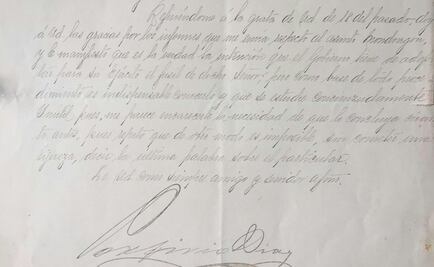 Refiriéndome á la grata de Ud. de 18 del pasado, doy
á Ud. las gracias por los informes que me envía respecto al asunto Mondragón,
y le manifiesto que es la verdad la intención que el Gobierno tiene de adop-
tar para su Ejército el fusil de dicho Señor; pero como base de todo proce-
dimiento es indispensable conocerlo y que se estudie concienzudamente.
Insisto, pues, me parece la necesidad de que lo concluya cuan-
to antes, pues repito que de otro modo es imposible, sin cometer una
ligereza, decir la última palabra sobre el particular.
De Ud. como siempre amigo y servidor afmo.
Porfirio Diaz